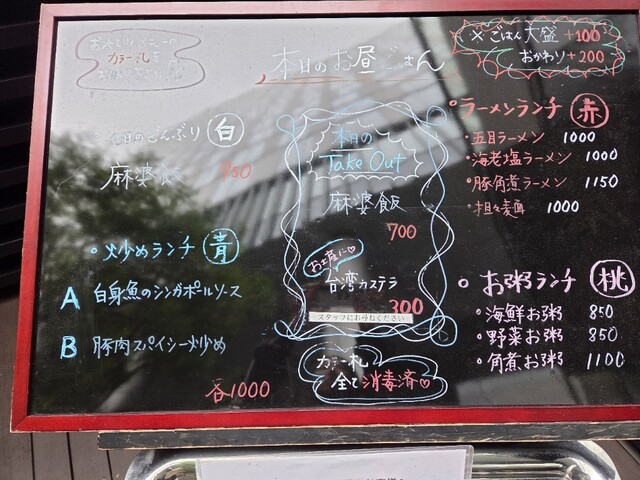 本日のお昼ごはん
お決まりメニューの
カラー札を
ごはん大盛 +100
おかわり +200
本日のどんぶり 白
麻婆飯 950
・炒めランチ 青
A 白身魚のシンガポールソース
B 豚肉スパイシー炒め
各1000
本日の
Take Out
麻婆飯
700
お土産に♡
台湾カステラ
300
スタッフにお尋ねください
カラー札
全て消毒済♡
・ラーメンランチ 赤
・五目ラーメン 1000
・海老塩ラーメン 1000
・豚角煮ラーメン 1150
・担々麺 1000
・お粥ランチ 桃
・海鮮お粥 850
・野菜お粥 850
・角煮お粥 1100